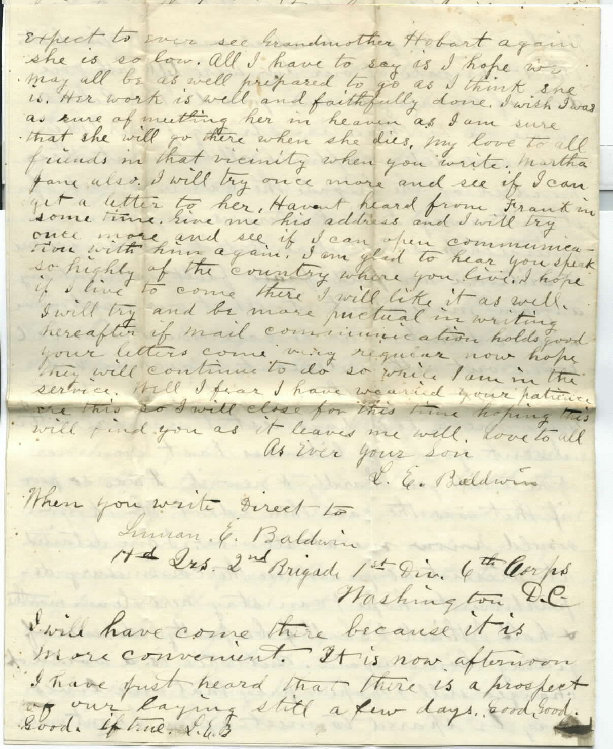 expect to ever see Grandmother Hobart again
she is so low. All I have to say is I hope we
may all be as well prepared to go as I think she
is. Her work is well and faithfully done. I wish I was
as sure of meeting her in heaven as I am sure
that she will go there when she dies. My love to all
friends in that vicinity when you write. Martha
Jane also. I will try once more and see if I can
get a letter to her. Havent heard from Franklin
some time. Give me his address and I will try
once more and see if I can open communica-
tion with him again. I am glad to hear you speak
so highly of the country where you live. I hope
if I live to come there I will like it as well.
I will try and be more puctual in writing
hereafter if mail communication holds good
your letters come very regular now hope
they will continue to do so while I am in the
service. Well I fear I have wearied your patience
ere this so I will close for this time hoping this
will find you as it leaves me well. Love to all
As Ever your Son
L. E. Baldwin
When you write Direct to
E. Baldwin
Hd Qrs. 2nd Brigade 1st Div. 6th Corps
Washington D.C
I will have come there because it is
more convenient. It is now afternoon
I have just heard that there is a prospect
of our laying still a few days. Good. Good.
Good. If true. L.E.B